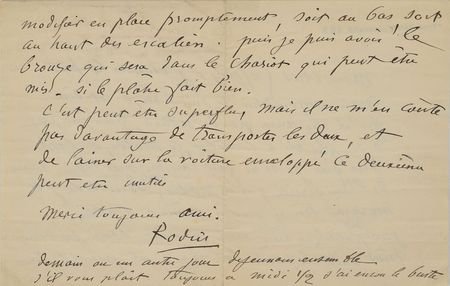 modifier en place promptement, soit au bas soit
au haut des escaliers. puis je puis avoir le
bronze qui sera dans le chariot qui peut être
mis. si le plâtre fait bien.
C'est peut être superflu, mais il ne m'en coute
pas davantage de transporter les deux, et
de laisser sur la voiture enveloppé ce deuxième
peut etre inutile
Merci toujours ami.
Rodin
demain ou un autre jour dejeunons ensemble
s'il vous plait toujours a midi 1/2 j'ai encore le buste